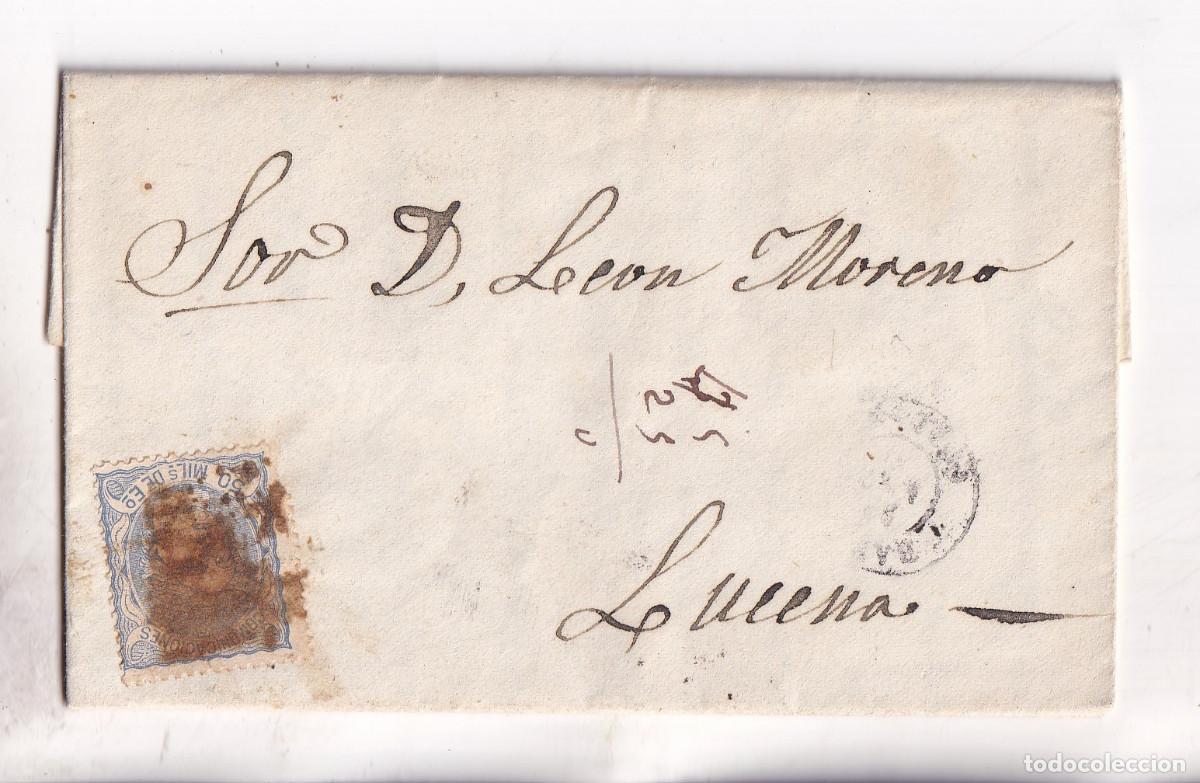 Sor D. Leon Moreno
Lucena
50 MILS DE EO
COMUNICACIONES
todocoleccion